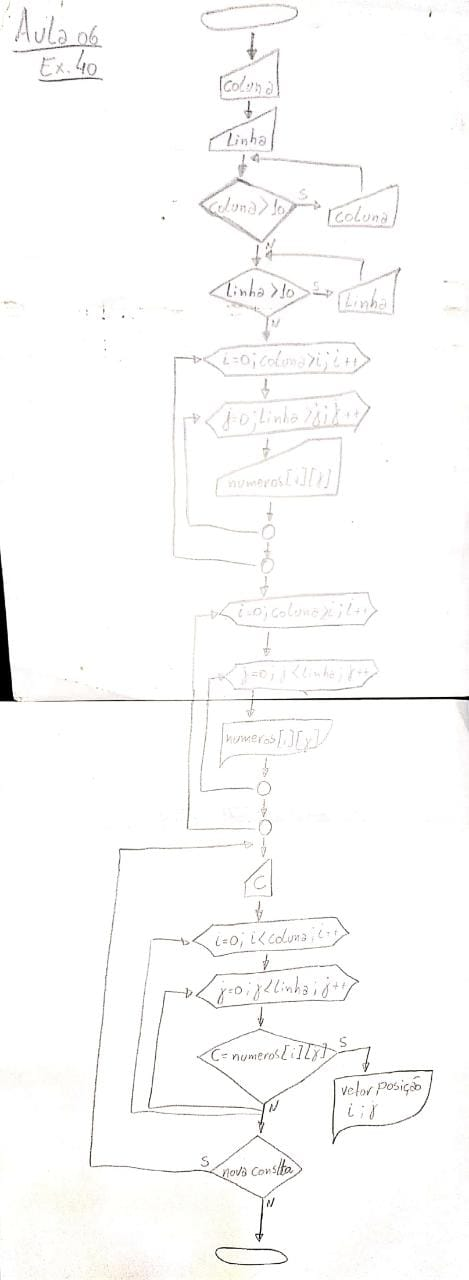 Aula 06
Ex. 40
coluna
Linha
coluna>10
S
coluna
N
Linha>10
S
Linha
N
i=0; coluna>i; i++
j=0; Linha>j; j++
numeros[i][j]
i=0; coluna>i; i++
j=0; j<linha; j++
numeros[i][j]
C
i=0; i<coluna; i++
j=0; j<linha; j++
C=numeros[i][j]
S
vetor posição
i ; j
N
S
nova conslta
N